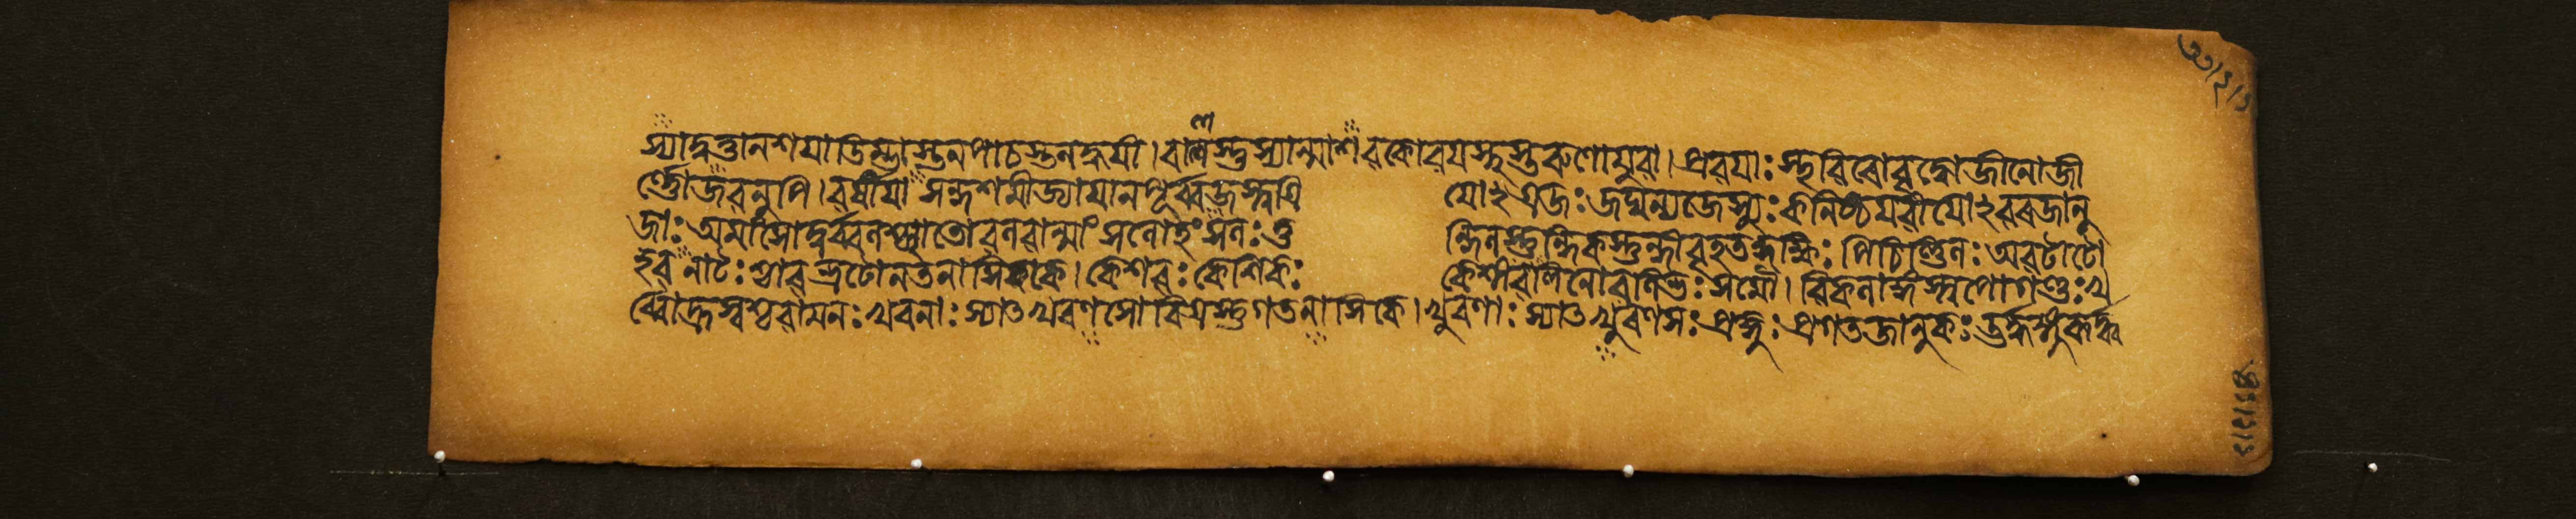 স্যাদুত্তানশয়া ডিম্ভা স্তনপা চ স্তনন্ধয়ী । বালস্তু স্যান্মাণবকো বয়স্থস্তরুণো যুবা । প্রবয়াঃ স্থবিরো বৃদ্ধো জীনো জী
র্ণ্ণো জরন্নপি । বর্ষীয়ান্দশমী জ্যায়ান পূর্ব্বজস্ত্বগ্রি য়োঽগ্রজঃ জঘন্যজে স্যুঃ কনিষ্ঠযবীয়োঽবরজানু
জাঃ অমাংসো দুর্ব্বলশ্ছাতো বলবান্মাংসলোঽংসলঃ তু ন্দিলস্তুন্দিকস্তুন্দী বৃহৎকুক্ষিঃ পিচিণ্ডিলঃ অবটীটো
ঽবনাটঃ শ্চাবভ্রটো নতনাসিকে । কেশবঃ কেশিকঃ কেশী বলিনো বলিভঃ সমৌ । বিকলাঙ্গস্ত্বপোগণ্ডঃ খ
র্ব্বো হ্রস্বশ্চ বামনঃ খরণাঃ স্যাৎ খরণসো বিগ্রস্তু গতনাসিকে । খুরণাঃ স্যাৎ খুরণসঃ প্রজ্ঞুঃ প্রগতজানুকঃ ঊর্দ্ধজ্ঞুরূর্দ্ধ